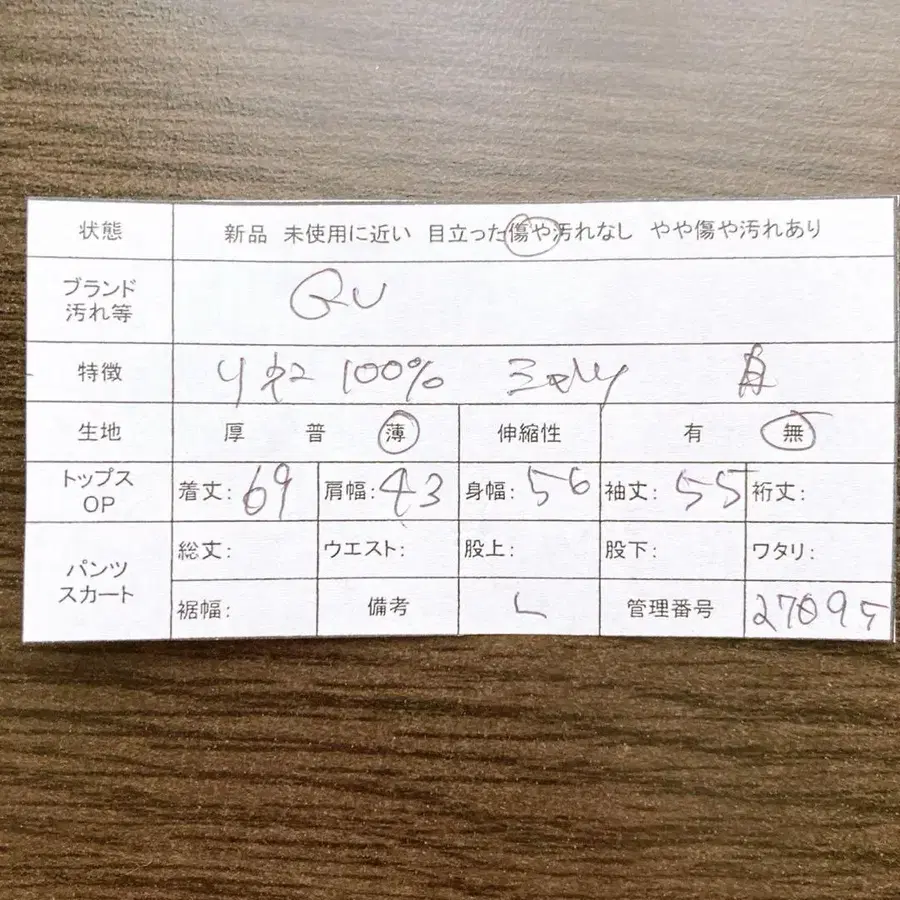 状態 新品 未使用に近い 目立った傷や汚れなし やや傷や汚れあり
ブランド
汚れ等 GU
特徴 100%
生地 厚 普 薄 伸縮性 有 無
トップス
OP 着丈: 69 肩幅: 43 身幅: 56 袖丈: 55 裄丈:
パンツ
スカート 総丈: ウエスト: 股上: 股下: ワタリ:
裾幅: 備考 L 管理番号 27095